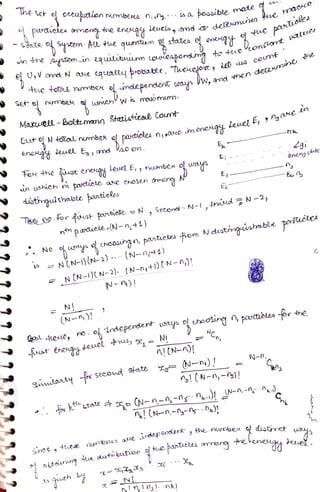 The set of occupation numbers n₁, n₂ ... is a possible mode of
of particles among the energy levels, and it determines the macro
- state of system. All the quantum states of energy of the particles
in the system in equilibrium corresponding to the constant values
of U, V and N are equally probable. Therefore, let us count
the total number of independent ways W, and then determine the
set of numbers of which W is maximum.
Maxwell - Boltzmann Statistical Count
Out of N total number of particles n₁ are in energy level E₁, n₂ are in
energy level E₂, and so on.
For the first energy level E₁, number of ways
in which n₁ particle are chosen among N
distinguishable particles
For first particle = N, Second = N-1, third = N-2,
n₁th particle = (N-n₁+1)
∴ No of ways of choosing n₁ particles from N distinguishable particles
is = N(N-1)(N-2) ... (N-n₁+1)
= N(N-1)(N-2) ... (N-n₁+1)(N-n₁)!
(N-n₁)!
= N!
(N-n₁)!
hence, no. of independent ways of choosing n₁ particles for the
first energy level thus, x₁ = N!
n₁!(N-n₁)!
Similarly for second state x₂ = (N-n₁)!
n₂!(N-n₁-n₂)!
∴ for kth state
Since, these numbers are independent, the number of distinct ways
of obtaining the distribution of the particles among the energy level
is given by x = x₁x₂x₃ ... xₖ
x = N!
n₁! n₂! n₃! ... nₖ!